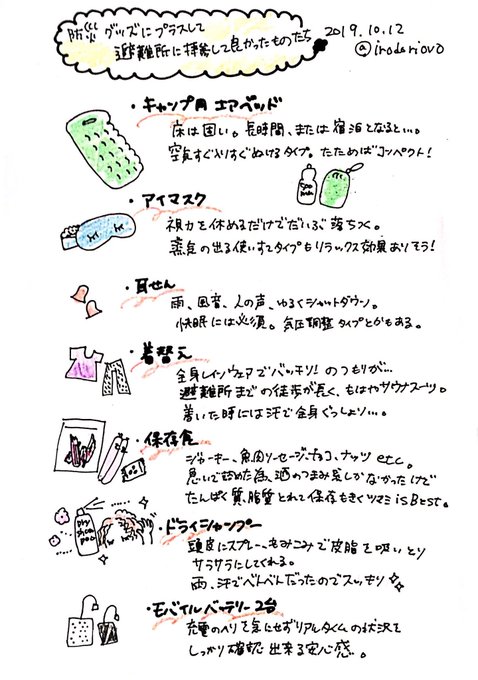 防災グッズにプラスして
避難所に持参して良かったものたち
2019.10.12
@iroderiovo
・キャンプ用エアベッド
床は固い。長時間、または宿泊となると…。
空気すぐ入りすぐぬけるタイプ。たためばコンパクト！
500
mL
・アイマスク
視力を休めるだけでだいぶ落ちつく。
蒸気の出る使いすてタイプもリラックス効果ありそう！
・耳せん
雨、風音、人の声、ゆるくシャットダウン。
快眠には必須。気圧調整タイプとかもある。
・着替え
全身レインウェアでバッチリ！のつもりが…
避難所までの徒歩が長く、もはやサウナスーツ。
着いた時には汗で全身ぐっしょり…。
・保存食
ジャーキー、魚肉ソーセージ、チョコ、ナッツ etc。
急いで詰めた為、酒のつまみ系しかなかったけど
たんぱく質、脂質とれて保存もきくツマミ is Best。
・ドライシャンプー
dry
sham
poo
頭皮にスプレー、もみこみで皮脂を吸いとり
サラサラにしてくれる。
雨、汗でべんべんだったのでスッキリ
・モバイルバッテリー2台
充電のヘリを気にせずリアルタイムの状況を
しっかり確認出来る安心感。